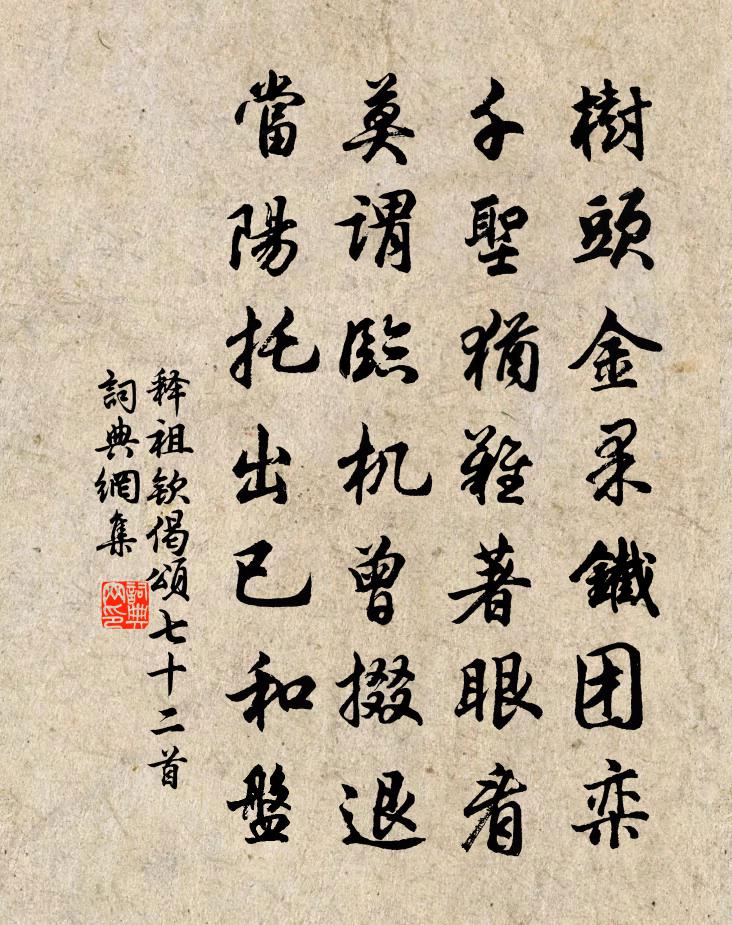 樹頭金果鐵团栾
千聖猶難著眼看
莫謂臨机曾掇退
當陽托出已和盤
释祖钦偈頌七十二首
詞典網集
詞典
网印